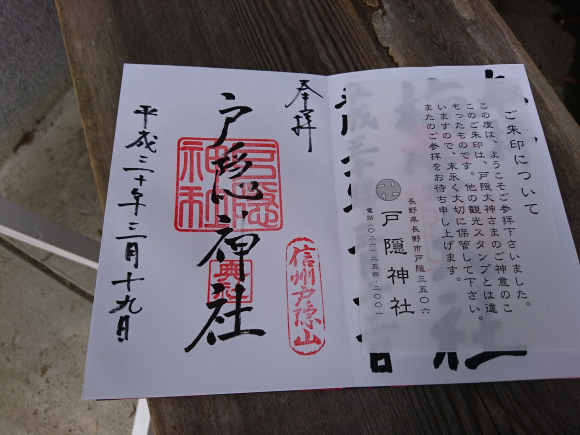 ご朱印について
この度は、ようこそご参拝下さいました。
このご朱印は、戸隠大神さまのご神意のこ
もったものです。他の観光スタンプとは違
いますので、末永く大切に保管して下さい。
またのご参拝をお待ち申し上げます。
長野県長野市戸隠三五〇六
戸隠神社
電話 〇二六-二五四-二〇〇一
奉拝
戸隠神社
戸隠神社
奥社
信州戸隠山
平成三十年三月十九日